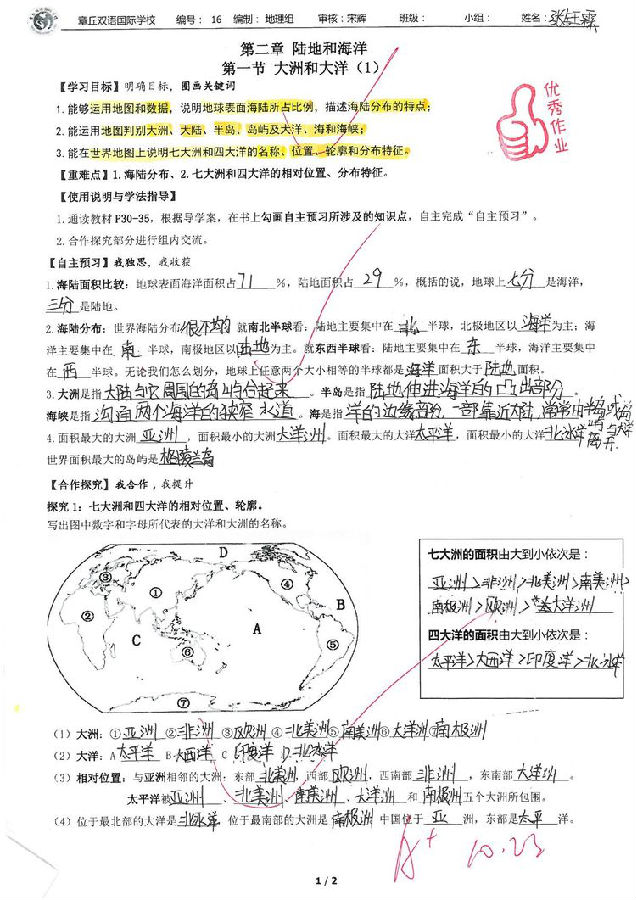 章丘双语国际学校 编号： 16 编制：地理组 审核：宋辉 班级： 小组： 姓名：
第二章 陆地和海洋
第一节 大洲和大洋（1）
优秀作业
【学习目标】明确目标，圈画关键词
1.能够运用地图和数据，说明地球表面海陆所占比例，描述海陆分布的特点；
2.能运用地图判别大洲、大陆、半岛、岛屿及大洋、海和海峡；
3.能在世界地图上说明七大洲和四大洋的名称、位置、轮廓和分布特征。
【重难点】1.海陆分布、2.七大洲和四大洋的相对位置、分布特征。
【使用说明与学法指导】
1.通读教材 P30-35，根据导学案，在书上勾画自主预习所涉及的知识点，自主完成“自主预习”。
2.合作探究部分进行组内交流。
【自主预习】我独思，我收获
1.海陆面积比较：地球表面海洋面积占 71 %，陆地面积占 29 %，概括的说，地球上 七分 是海洋，
三分 是陆地。
2.海陆分布：世界海陆分布 很不均匀 就南北半球看：陆地主要集中在 北 半球，北极地区以 海洋 为主；海
洋主要集中在 南 半球，南极地区以 陆地 为主。就东西半球看：陆地主要集中在 东 半球，海洋主要集中
在 西 半球。无论我们怎么划分，地球上任意两个大小相等的半球都是 海洋 面积大于 陆地 面积。
3.大陆是指 大陆与它周围的岛屿合起来 。半岛是指 陆地伸进海洋的凸出部分
海峡是指 沟通两个海洋的狭窄水道 。海是指 洋的边缘部分，一部靠近大陆，常常用半岛或岛屿与大洋离开.
4.面积最大的大洲 亚洲 ，面积最小的大洲 大洋洲 。面积最大的大洋 太平洋 ，面积最小的大洋 北冰洋
世界面积最大的岛屿是 格陵兰岛
【合作探究】我合作，我提升
探究 1：七大洲和四大洋的相对位置、轮廓。
写出图中数字和字母所代表的大洋和大洲的名称。
七大洲的面积由大到小依次是：
亚洲>非洲>北美洲>南美洲>
南极洲>欧洲>大洋洲
四大洋的面积由大到小依次是：
太平洋>大西洋>印度洋>北冰洋
D
③ ① ④
② B
C A
⑥ ⑤
⑦
（1）大洲：①亚洲 ②非洲 ③欧洲 ④北美洲 ⑤南美洲 ⑥大洋洲 ⑦南极洲
（2）大洋：A 太平洋 B 大西洋 C 印度洋 D 北冰洋
（3）相对位置：与亚洲相邻的大洲，东部 北美洲 ，西部 欧洲 ，西南部 非洲 ，东南部 大洋洲 。
太平洋被 亚洲 、北美洲 、南美洲 、大洋洲 和 南极洲 五个大洲所包围。
（4）位于最北部的大洋是 北冰洋 ，位于最南部的大洲是 南极洲 中国位于 亚 洲，东部是 太平 洋。
A+ 10.23
1 / 2